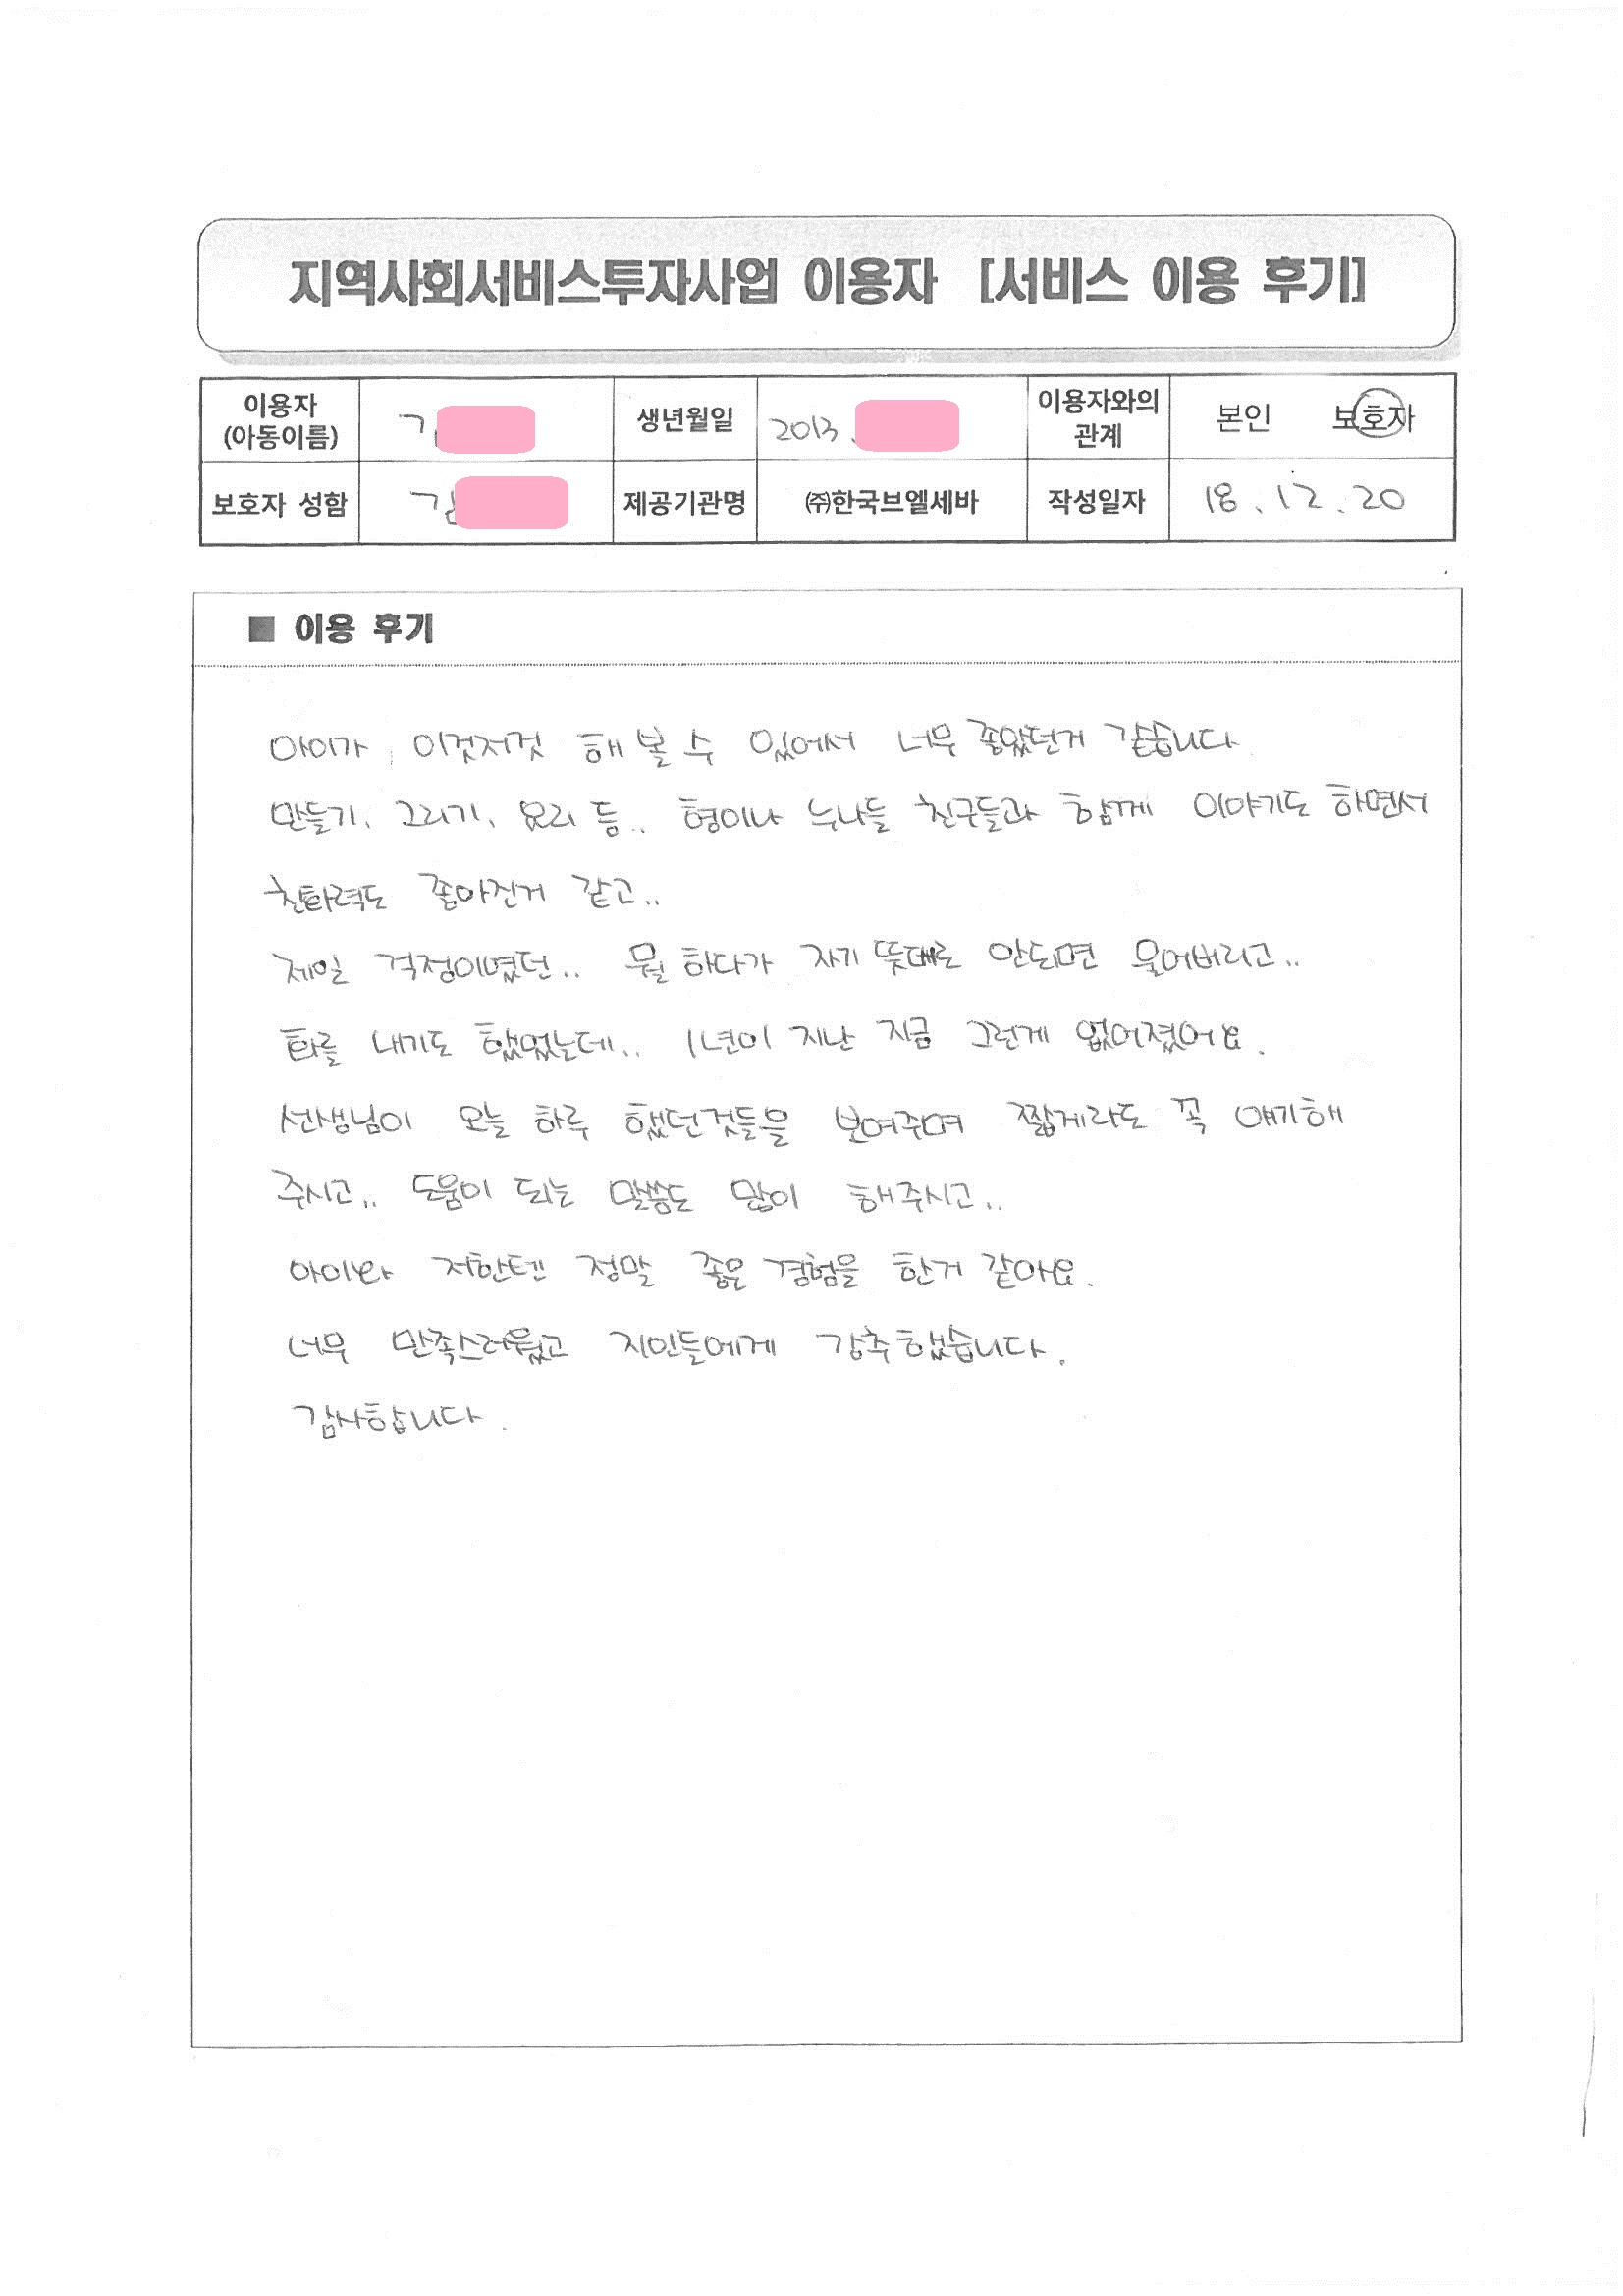 지역사회서비스투자사업 이용자 [서비스 이용 후기]
이용자 (아동이름) 생년월일 2013. 이용자와의 관계 본인 보호자
보호자 성함 제공기관명 ㈜한국브엘세바 작성일자 18.12.20
■ 이용 후기
아이가 이것저것 해 볼 수 있어서 너무 좋았던거 같습니다
만들기, 그리기, 요리 등.. 형이나 누나들 친구들과 함께 이야기도 하면서
친화력도 좋아진거 같고..
제일 걱정이였던.. 뭘 하다가 자기 뜻대로 안되면 울어버리고..
화를 내기도 했었는데.. 1년이 지난 지금 그런게 없어졌어요.
선생님이 오늘 하루 했던것들을 보여주며 짧게라도 꼭 얘기해
주시고.. 도움이 되는 말씀도 많이 해주시고..
아이와 저한텐 정말 좋은 경험을 한거 같아요.
너무 만족스러웠고 지인들에게 강추했습니다.
감사합니다.